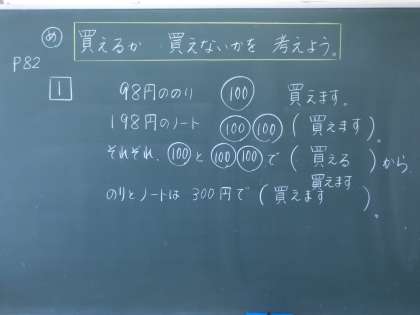 め 買えるか 買えないかを 考えよう。
P82
1 98円ののり 100 買えます。
198円のノート 100 100 (買えます)。
それぞれ、100と100 100で(買える)から
買えます
のりとノートは 300円で(買えます)。